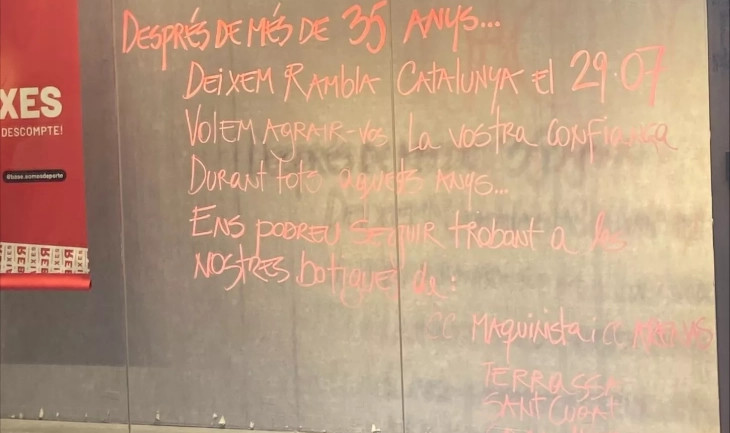 XES
DESCOMPTE!
@base.somosdeporte
DESPRÉS DE MÉS DE 35 ANYS...
DEIXEM RAMBLA CATALUNYA El 29.07
VOLEM AGRAIR-VOS La VOSTRA CONFIANÇA
DURANT TOTS AQUESTS ANYS...
ENS PODREU SEGUIR TROBANT A les
NOSTRES botigues de:
CC MAQUINISTA i CC
TERRASSA
SANT CUGAT